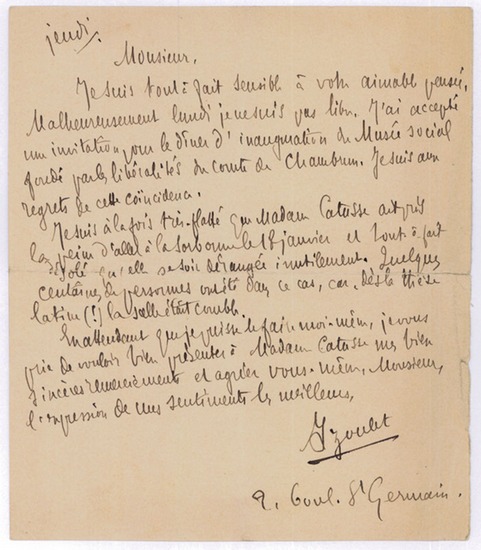 jeudi.
Monsieur,
Je suis tout à fait sensible à votre aimable pensée.
Malheureusement lundi je ne suis pas libre. J'ai accepté
une invitation pour le dîner d'inauguration du Musée social
fondé par les libéralités du comte de Chambrun. Je suis aux
regrets de cette coïncidence.
Je suis à la fois très flatté que Madame Catusse ait pris
la peine d'aller à la Sorbonne le 18 janvier et tout à fait
désolé qu'elle se soit dérangée inutilement. Quelques
centaines de personnes ont été dans ce cas, car, dès la thèse
latine (!) la salle était comble.
En attendant que je puisse le faire moi-même, je vous
prie de vouloir bien présenter à Madame Catusse mes bien
sincères remerciements et agréer vous-même, Monsieur,
l'expression de mes sentiments les meilleurs,
Izoulet
2, boul. St Germain.